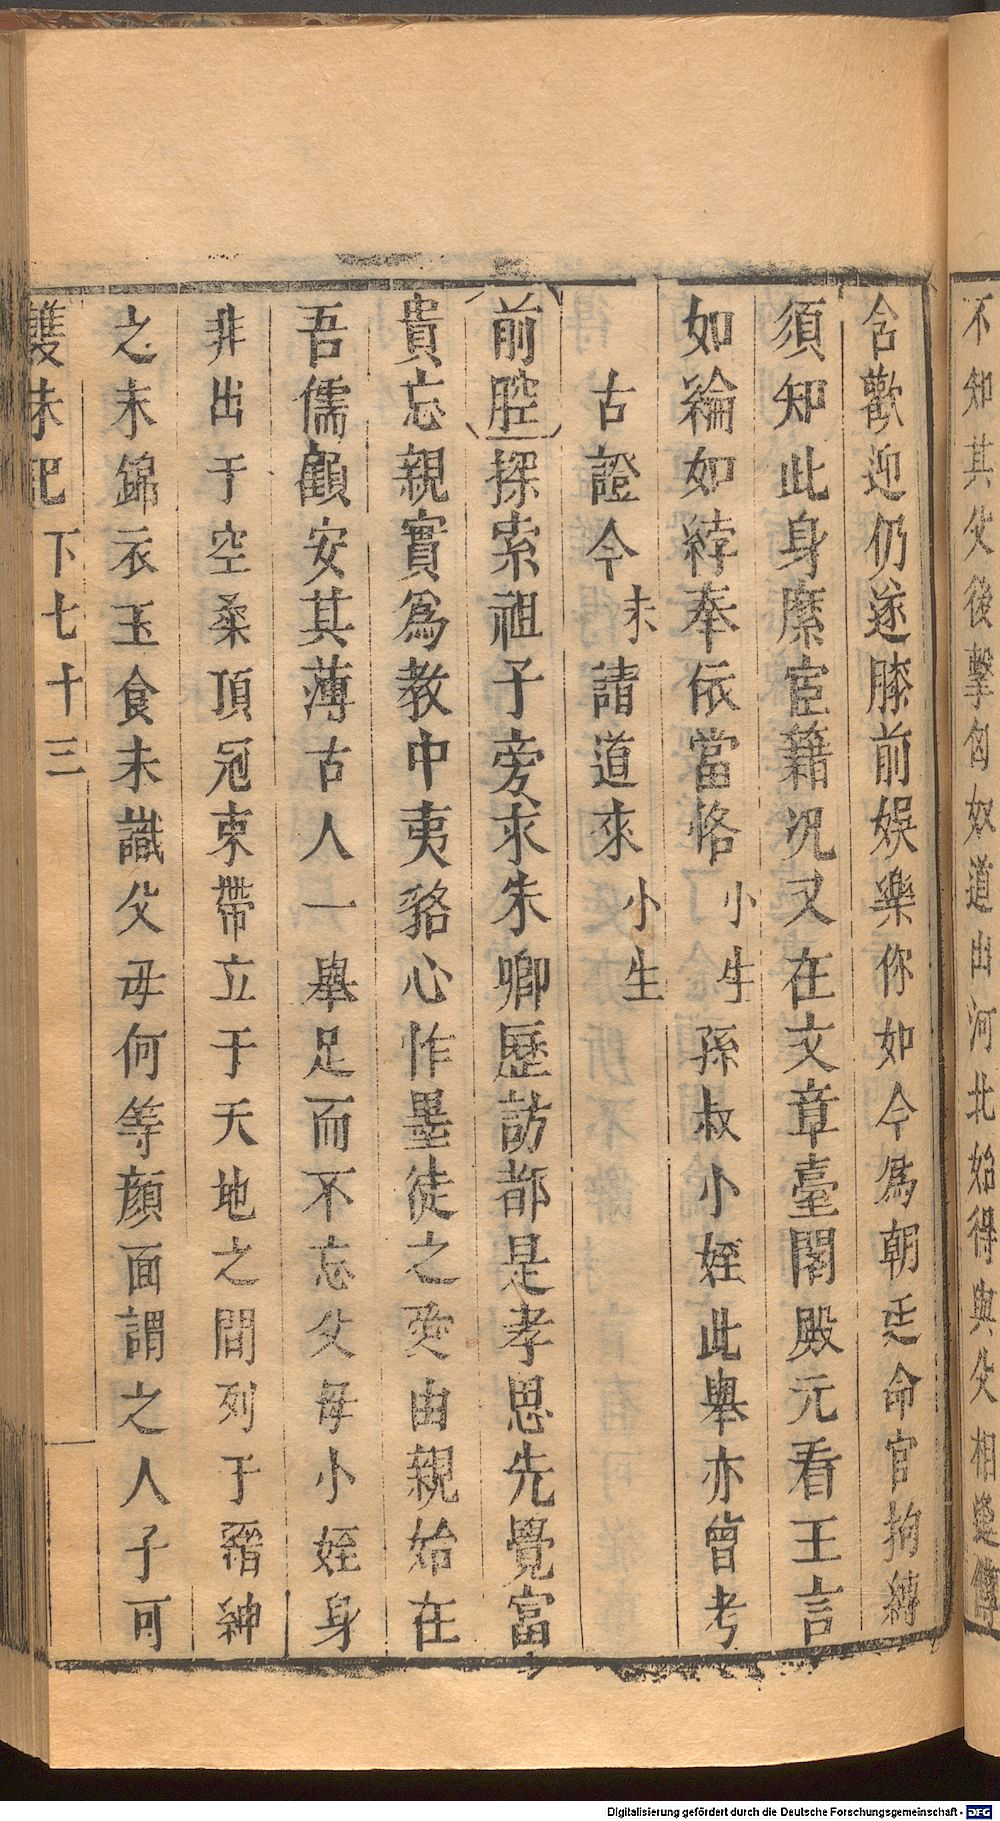 不知其父後擊匈奴道出河北始得與父相逢傳
含歡迎仍遂膝前娛樂你如今爲朝廷命官拘縛
須知此身縻宦籍况又在文章臺閣殿元看王言
如綸如綍奉依當恪小生孫叔小姪此舉亦曾考
古證今末請道來小生
前腔探索祖子旁求朱卿歷訪都是孝思先覺富
貴忘親實爲教中夷貉心怍墨徒之愛由親始在
吾儒顧安其薄古人一舉足而不忘父母小姪身
非出于空桑頂冠束帶立于天地之間列于搢紳
之末錦衣玉食未識父母何等顏面謂之人子可
雙朱記 下七十三
Digitalisierung gefördert durch die Deutsche Forschungsgemeinschaft - DFG